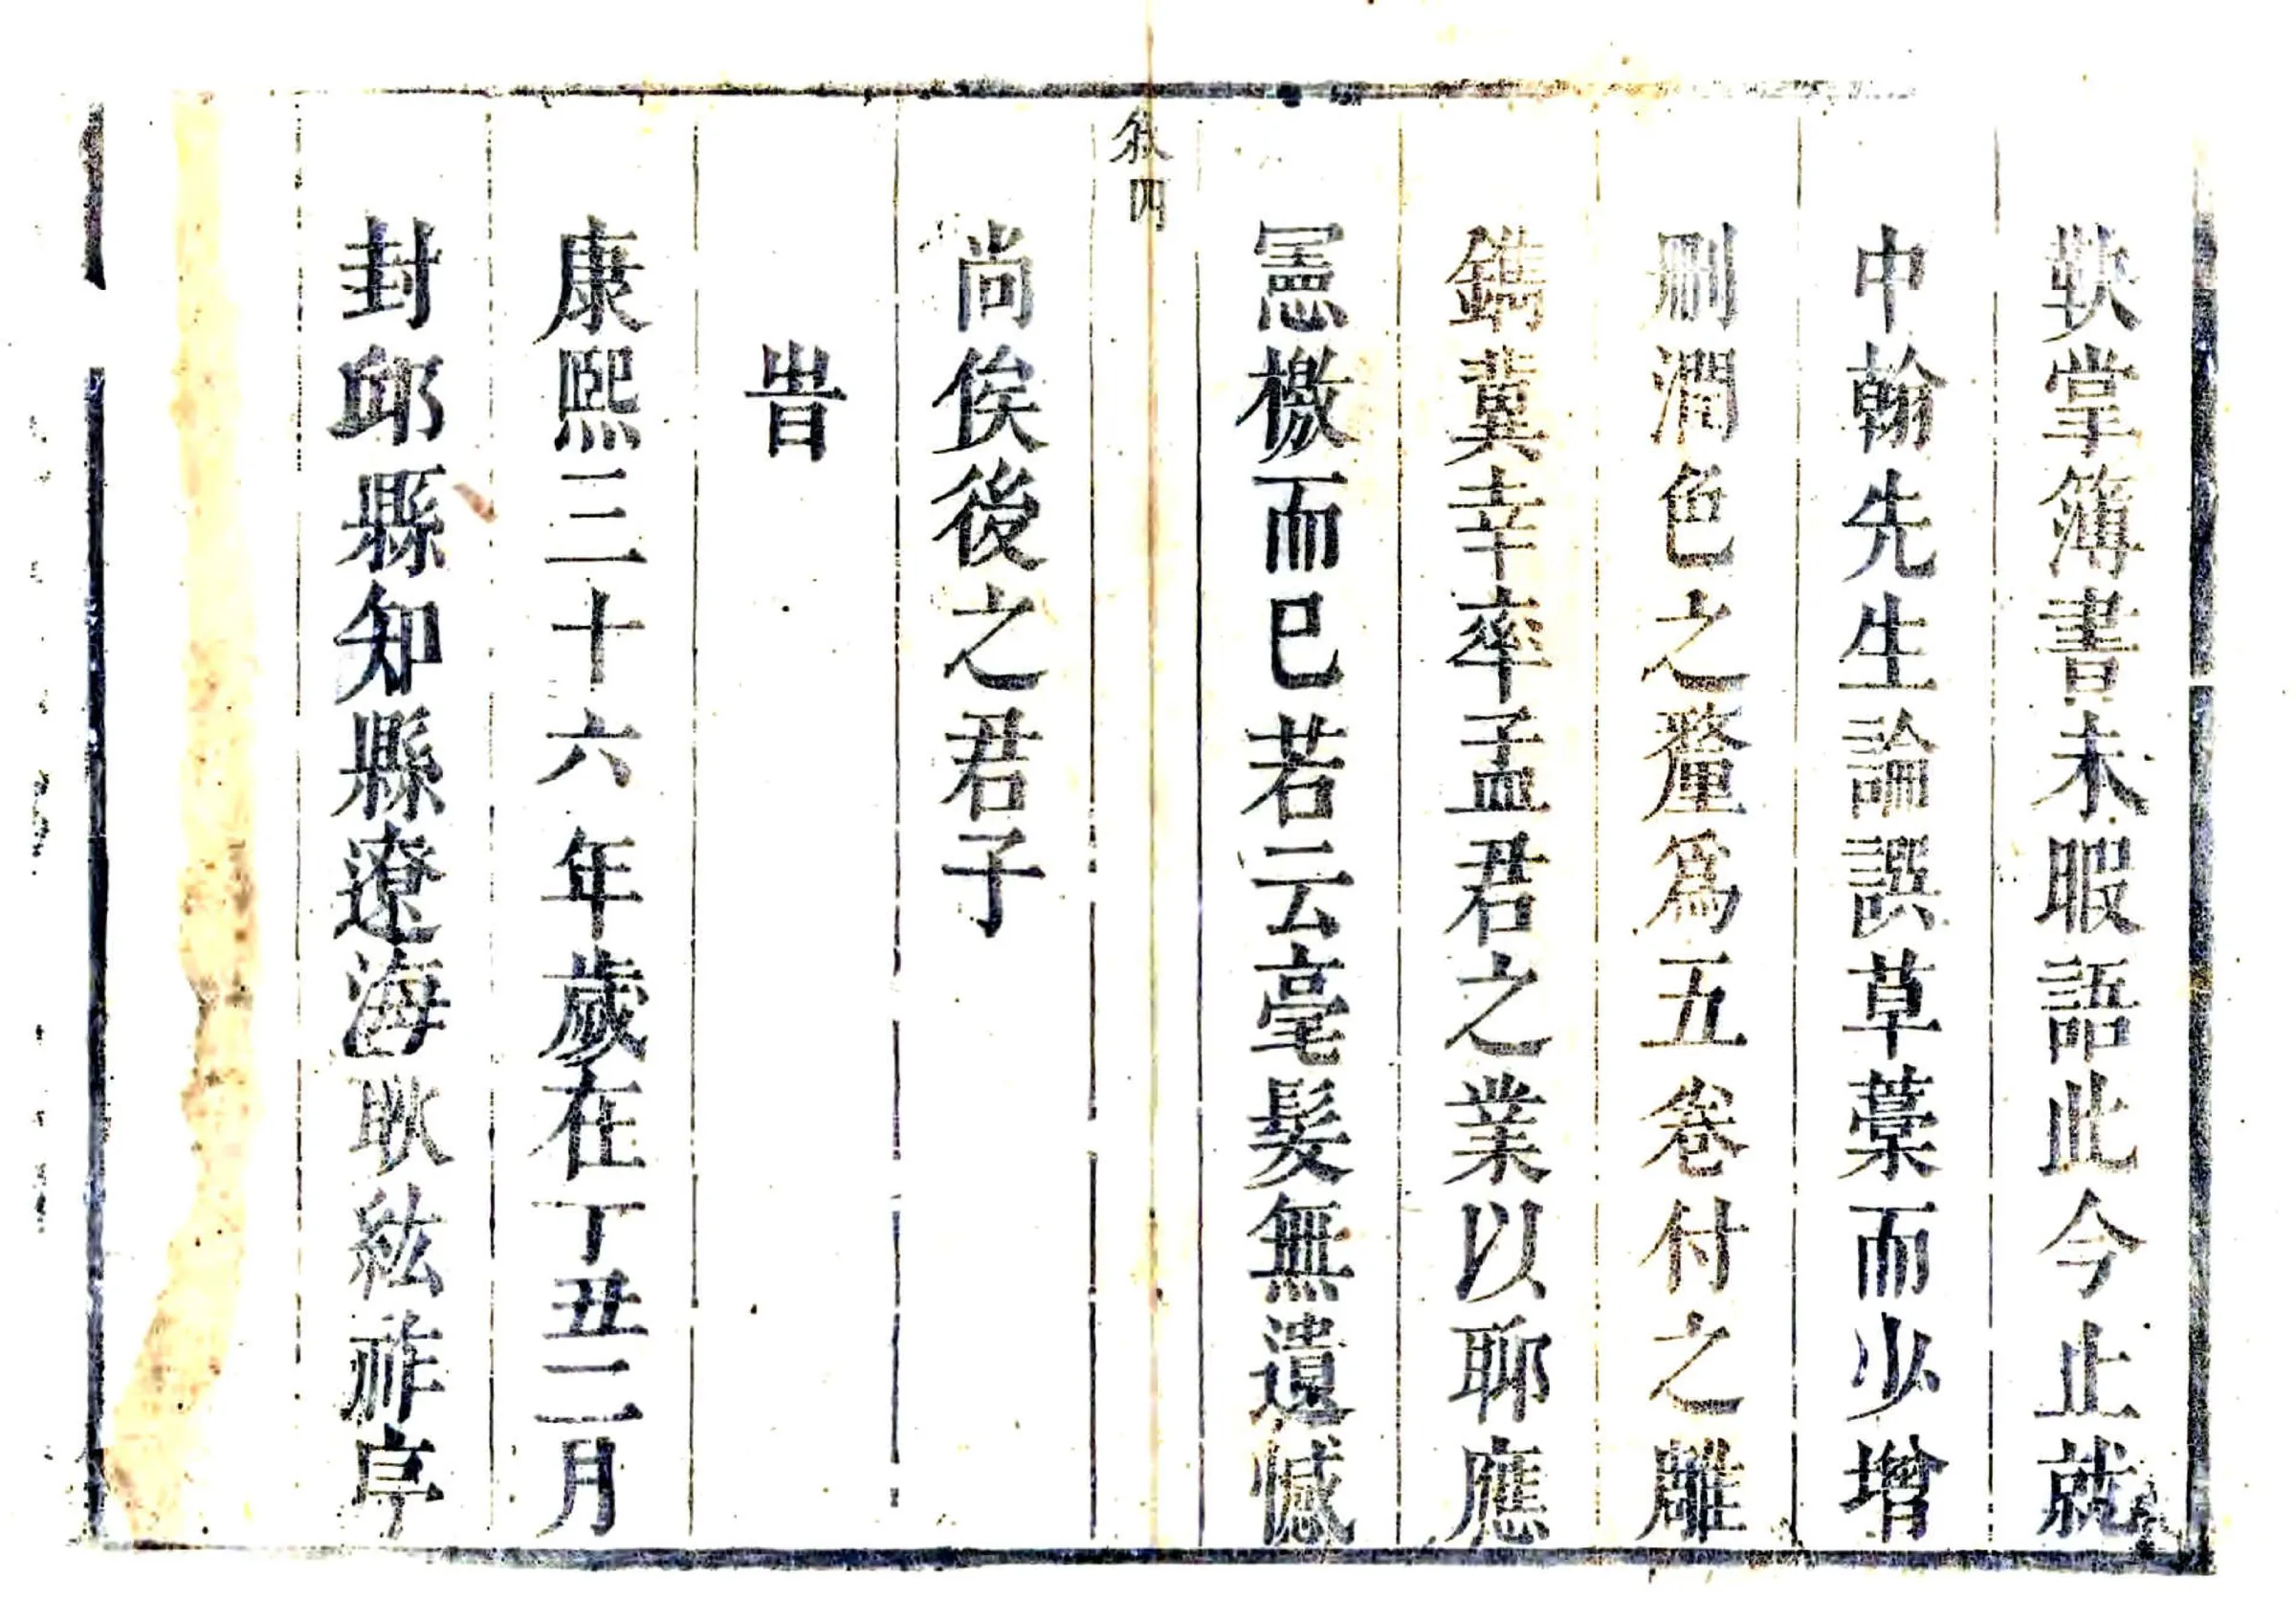 鞅掌簿書未暇語此今止就
中翰先生論譔草藁而少增
刪潤色之釐爲五卷付之雕
鐫冀幸卒孟君之業以聊應
憲檄而已若云毫髮無遺憾
叙 四
尚俟後之君子
旹
康熙三十六年歲在丁丑二月
封邱縣知縣遼海耿紘祚亭